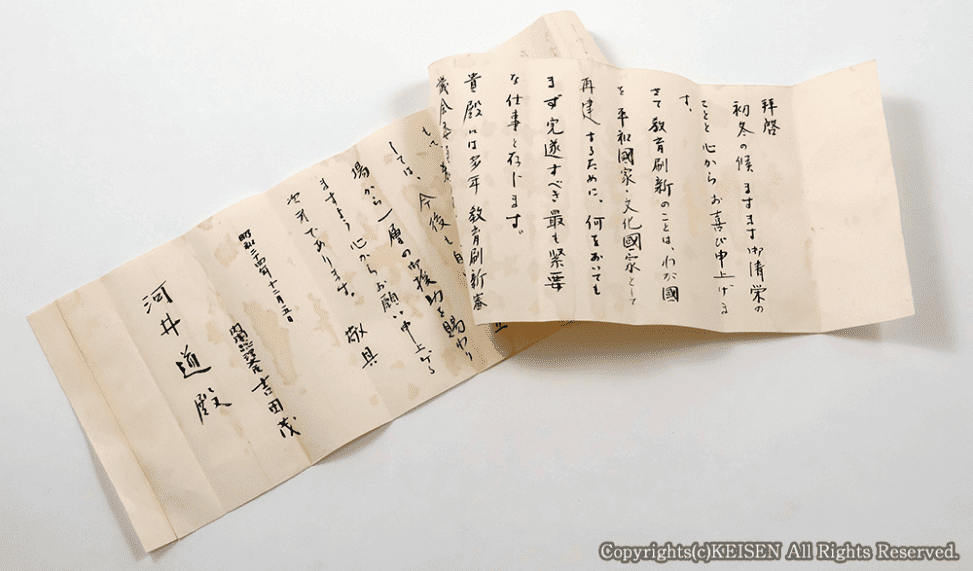 拝啓
初冬の候 ますます御清栄の
ことと心からお喜び申上げま
す。
さて教育刷新のことは、わが國
を平和國家・文化國家として
再建するために、何をおいても
まず完遂すべき最も緊要
な仕事と存じます。
貴殿には多年教育刷新審
もて
しては、今後も
場から一層の御援助を賜わり
ますよう心からお願い申上げる
次第であります。 敬具
昭和二十四年十一月五日
内閣総理大臣 吉田茂
河井道殿
Copyrights(c)KEISEN All Rights Reserved.